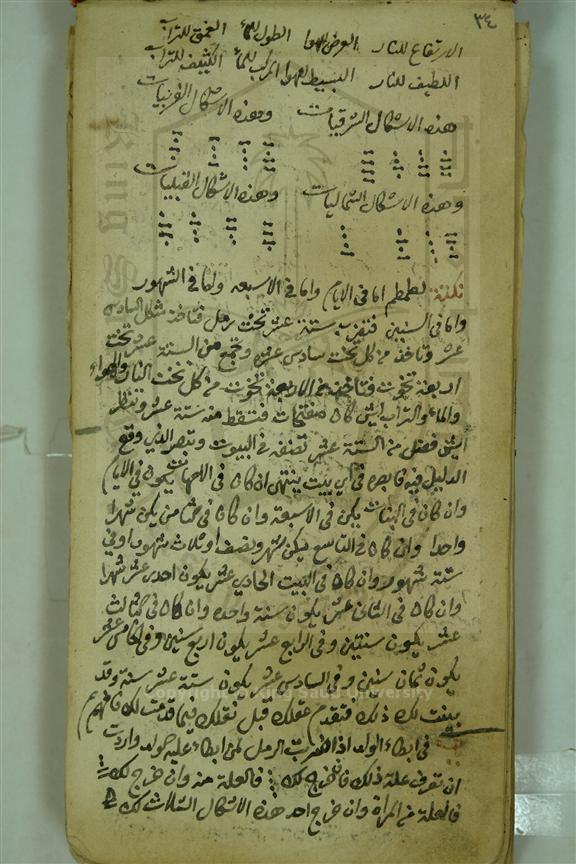 ٣٤
الارتفاع للنار العرض للهوا الطول للمأ العمق للتراب
اللطيف للنار البسيط للهوا المركب للمأ الكثيف للتراب
هذه الاشكال الشرقيات وهذه الاشكال الغربيات
وهذه الاشكال الشماليات وهذه الاشكال القبليات
نكتة لطمطم اما في الايام واما في الاسبعه واما في الشهور
واما في السنين فتضرب ستة عشر تخت رمل فتاخذ شكل السادس
عشر وتاخذ من كل تخت سادس عشره وتجمع من الستة عشر تخت
اربعة تخوت فتاخذ من الاربعة تخوت من كل تخت النار والهواء
والماء والتراب ايش كان مفتحات فتسقط منه ستة عشر وتنظر
ايش فضل من الستة عشر تضفه في البيوت وتبصر الذي وقع
الدليل فيه فابصره في اي بيت ينتهى ان كان في الامهات يكون في الايام
وان كان في البنات يكن في الاسبعة وان كان في ثامن يكن شهرا
واحدا وان كان في التاسع يكن شهر ونصف او ثلاث شهور او في
ستة شهور وان كان في البيت الحادي عشر يكون احدى عشر شهرا
وان كان في الثانى عشر يكون سنة واحده وان كان في ثالث
عشر يكون سنتين وفي الرابع عشر يكون اربع سنين وفي خامس عشر
يكون ثمان سنين وفي السادس عشر يكون ستة عشر سنة وقد
بينت لك ذلك فتقدم عقلك قبل نقلك فيما قدمت لك فافهم
في ابطاء الولد اذا ضربت الرمل لمن ابطاء عليه الولد واردت
ان تعرف علة ذلك فان خرج لك فالعلة منه وان خرج لك
فالعلة من المراة وان خرج احد هذه الاشكال الثلاث لك
Copyright © King Saud University